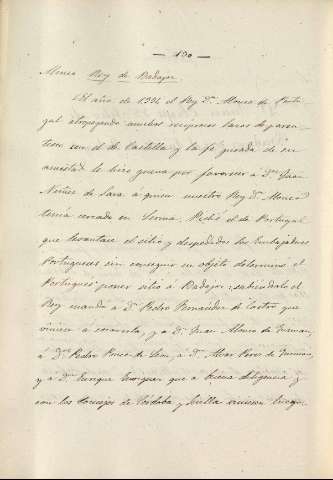 — 190 —
Alonso Rey de Badajoz
El año de 1334 el Rey Dn. Alonso de Portu-
gal atropegando aquellos reciprocos lazos de paren-
tesco con el de Castilla y la fé jurada de su
amistad le hizo guerra por favorecer a Dn. Juan
Nuñez de Lara á quien nuestro Rey D. Alonso
tenia cercado en Lerma. Pidió el de Portugal
que levantase el sitio y despedidos los Embajadores
Portugueses sin conseguir su objeto determinó el
Portugues poner sitio á Badajoz; sabiendolo el
Rey mandó á D. Pedro Fernandez de Castro que
viniese á socorrerla, y a D. Juan Alonso de Guzman,
á Dn. Pedro Ponce de Leon, a D. Alvar Perez de Guzman,
y á Dn. Enrique Enriquez que a buena diligencia y
con los Concejos de Cordoba y Sevilla vinieron